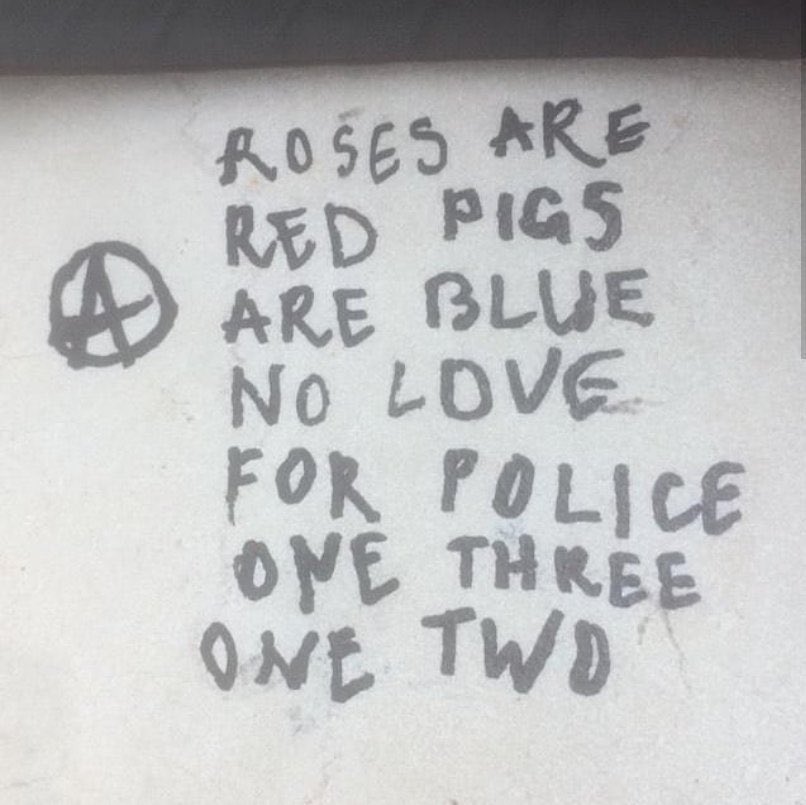 ROSES ARE
RED PIGS
ARE BLUE
NO LOVE
FOR POLICE
ONE THREE
ONE TWO